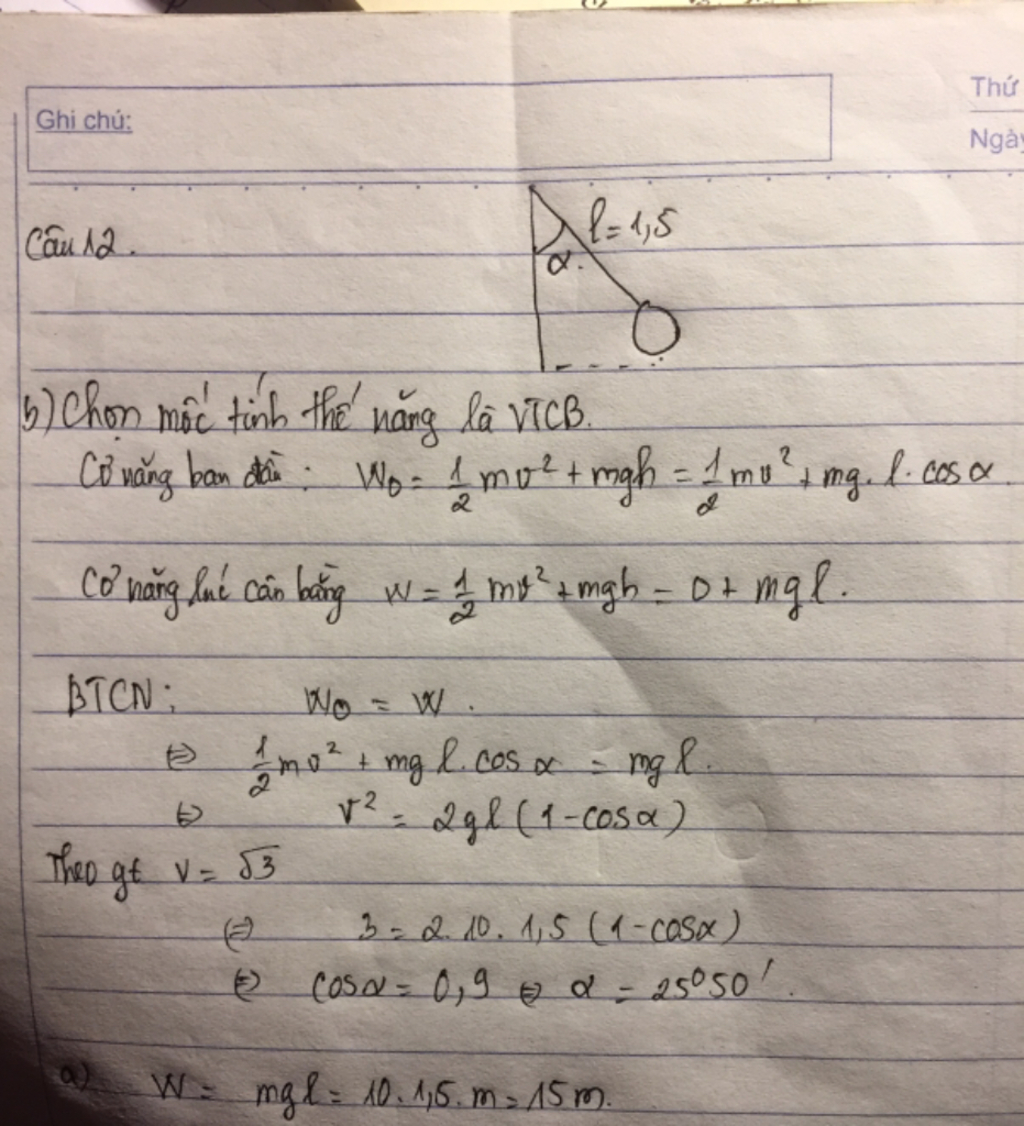 Ghi chú:
Thứ
Ngày
Câu 12.
l = 1,5
α
b) Chọn mốc tính thế năng là VTCB.
Cơ năng ban đầu: W₀ = 1/2 mv² + mgh = 1/2 mv² + mg. l. cosα
Cơ năng lúc cân bằng W = 1/2 mv² + mgh = 0 + mgl.
BTCN: W₀ = W.
⇔ 1/2 mv² + mg l. cos α = mg l.
⇔ v² = 2gl (1 - cosα)
Theo gt v = √3
⇔ 3 = 2. 10. 1,5 (1 - cosα)
⇔ cosα = 0,9 ⇔ α = 25°50'.
a) W = mgl = 10. 1,5. m = 15 m.